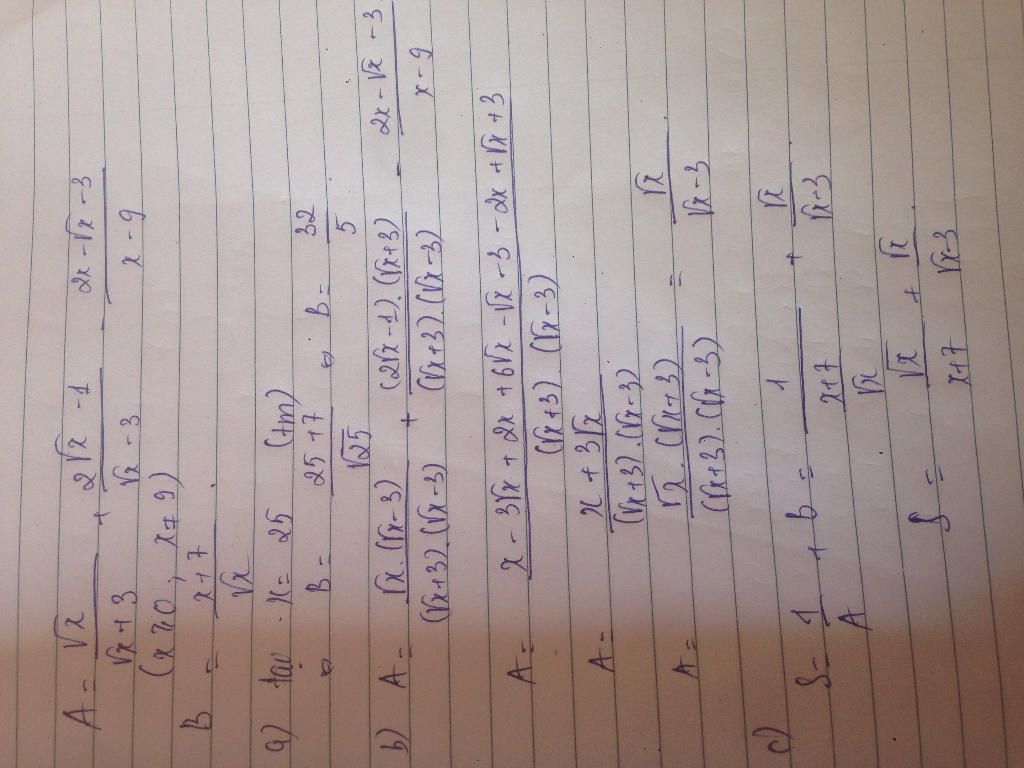 A = √x / (√x + 3) + (2√x - 1) / (√x - 3) - (2x - √x - 3) / (x - 9)
(x ≥ 0 ; x ≠ 9)
B = (x + 7) / √x .
a) x = 25 (tm)
⇔ B = (25 + 7) / √25 ⇔ B = 32 / 5
b) A = √x.(√x - 3) / (√x + 3).(√x - 3) + (2√x - 1).(√x + 3) / (√x + 3).(√x - 3) - (2x - √x - 3) / (x - 9)
A = (x - 3√x + 2x + 6√x - √x - 3 - 2x + √x + 3) / (√x + 3) (√x - 3)
A = (x + 3√x) / (√x + 3).(√x - 3)
A = √x.(√x + 3) / (√x + 3).(√x - 3) = √x / (√x - 3)
c) S = 1 / A + B = 1 / ((x + 7) / √x) + √x / (√x - 3)
S = √x / (x + 7) + √x / (√x - 3) .